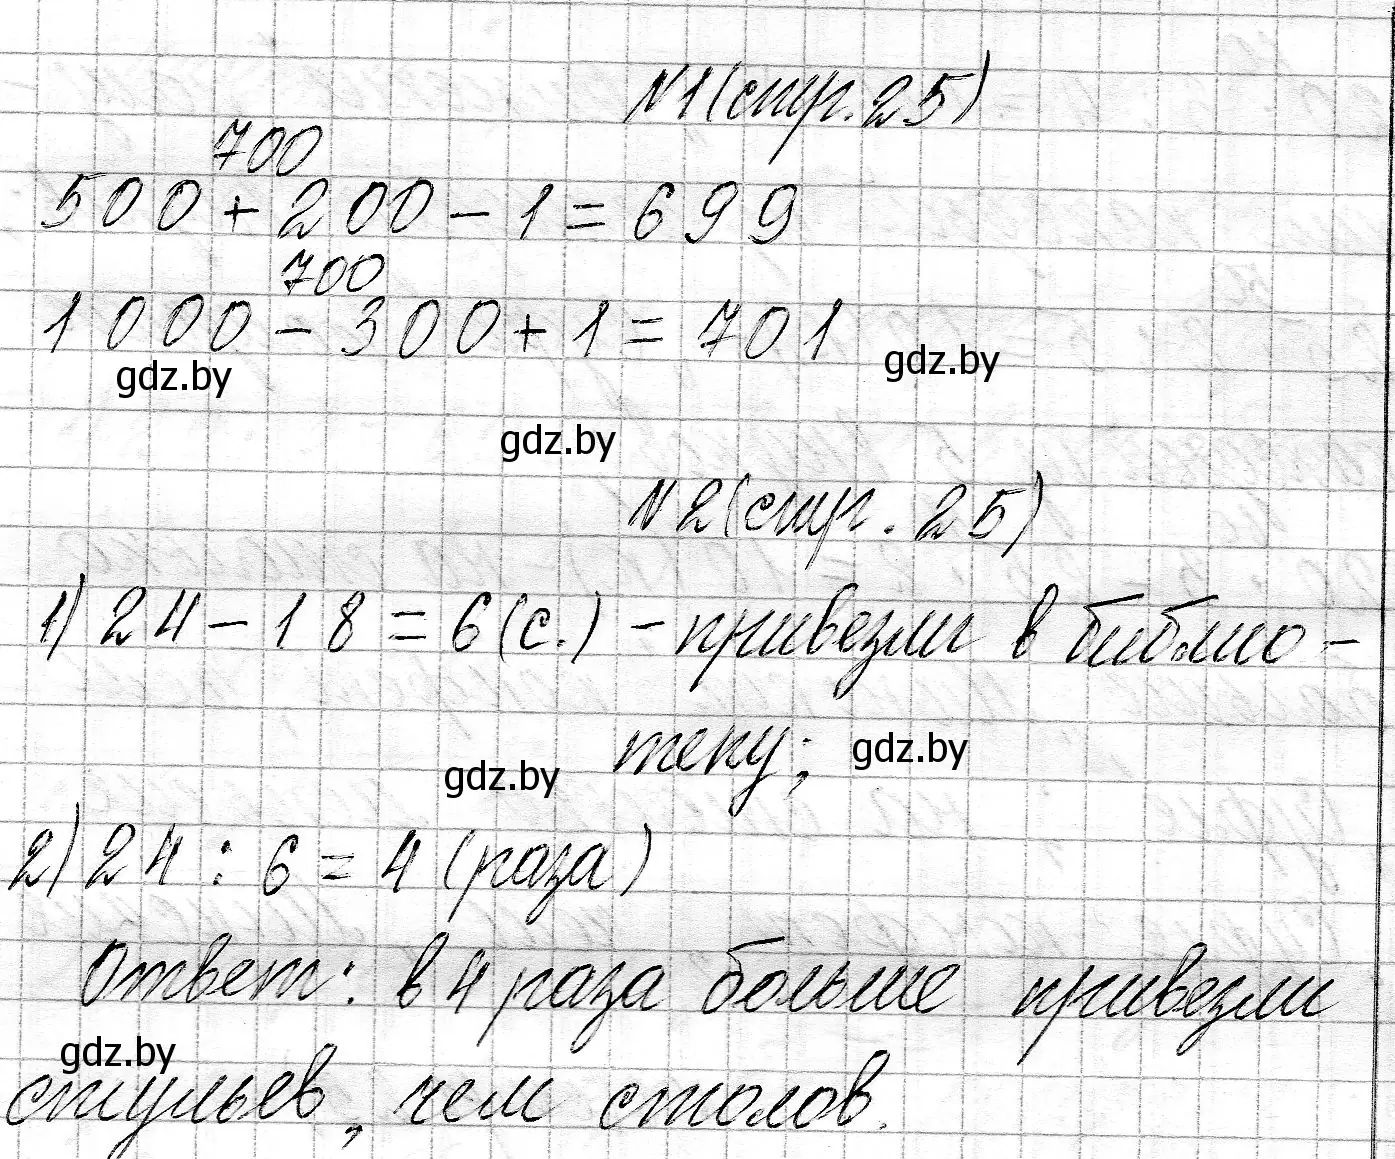 №1(стр.25)
700
500+200-1=699
700
1000-300+1=701
gdz.by
gdz.by
gdz.by
№2(стр.25)
1) 24-18=6(с.) - привезли в библио-
теку;
gdz.by
gdz.by
2) 24:6=4 (раза)
Ответ: в 4 раза больше привезли
gdz.by
стульев, чем столов.